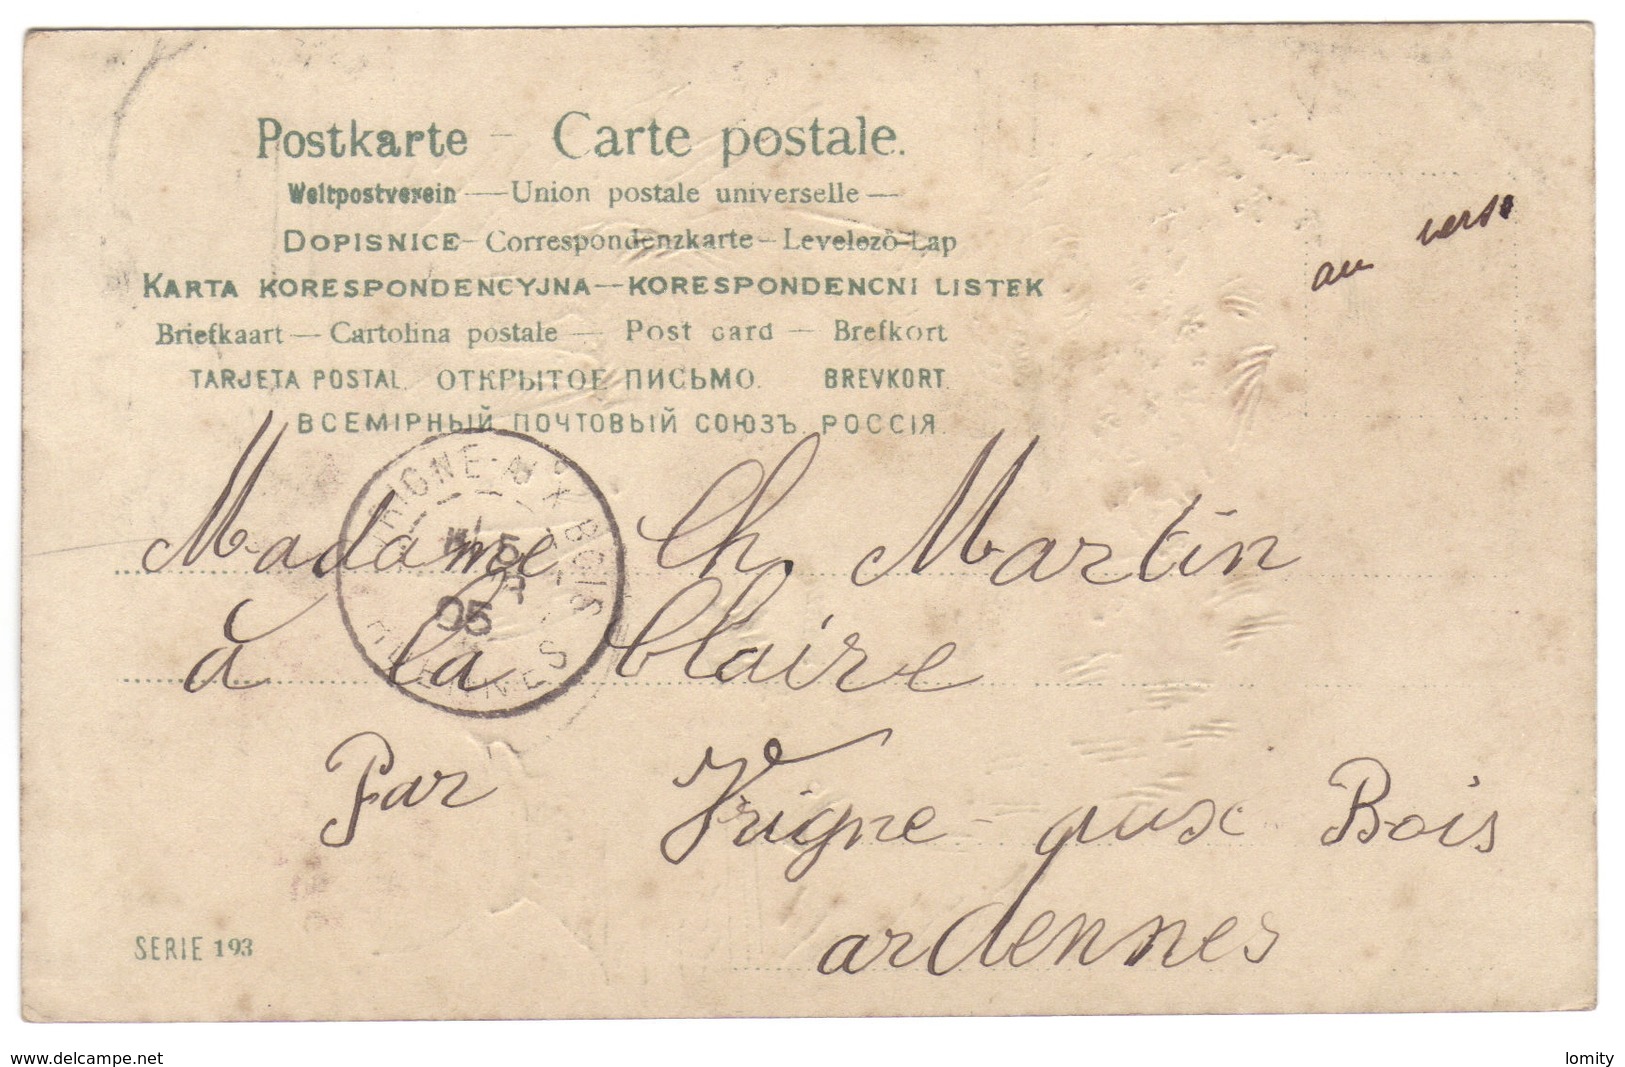 Postkarte - Carte postale.
Weltpostverein — Union postale universelle —
DOPISNICE - Correspondenzkarte - Levelező-Lap
KARTA KORESPONDENCYJNA — KORESPONDENCNI LISTEK
Briefkaart — Cartolina postale — Post card — Brefkort
TARJETA POSTAL. ОТКРЫТОЕ ПИСЬМО. BREVKORT.
ВСЕМІРНЫЙ ПОЧТОВЫЙ СОЮЗЪ. РОССІЯ.
au verso
VRIGNE AUX BOIS
05
ARDENNES
Madame Ch. Martin
à la Claire
Par Vrigne-aux-Bois
ardennes
SERIE 193
www.delcampe.net
lomity